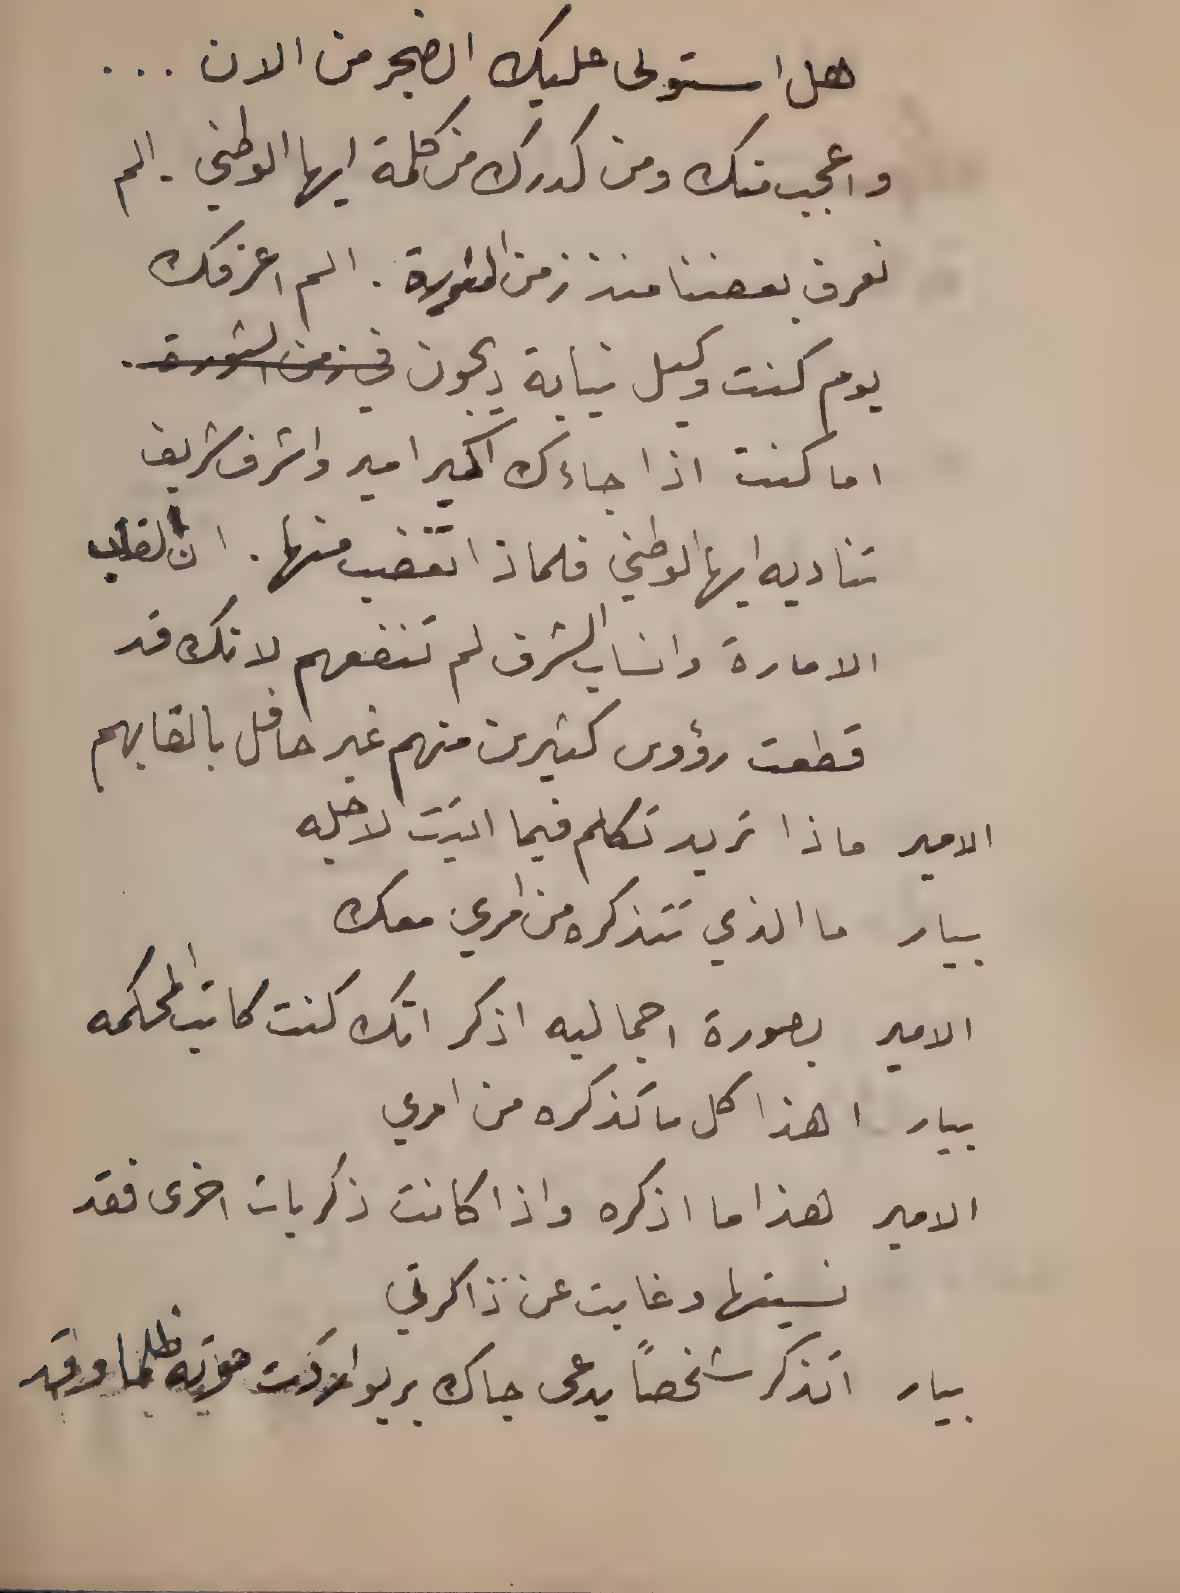 هل استولى عليك الضجر من الان ...
واعجب منك ومن كدرك من كلمة ايها الوطني . الم
نعرف بعضنا منذ زمن الثورة . الم اعرفك
يوم كنت وكيل نيابة ديجون في زمن الثورة .
اما كنت اذا جاءك اكبر امير واشرف شريف
تناديه ايها الوطني فلماذا تغضب منها . ان القاب
الامارة وانساب الشرف لم تنفعهم لانك قد
قطعت رؤوس كثيرين منهم غير حافل بالقابهم
الامير ماذا تريد تكلم فيما اتيت لاجله
بيار ما الذي تتذكره من امري معك
الامير بصورة اجماليه اذكر انك كنت كاتب المحكمه
بيار اهذا كل ما تذكره من امري
الامير هذا ما اذكره واذا كانت ذكريات اخرى فقد
نسيتها وغابت عن ذاكرتي
بيار اتذكر شخصاً يدعى جاك بريو موته ظلما وقد